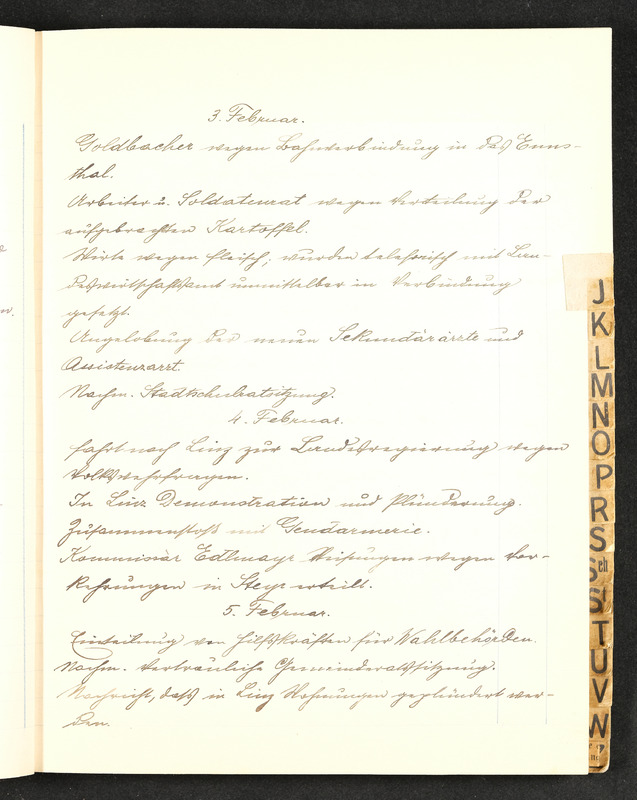 3. Februar.
Goldbacher wegen Bahnverbindung in das Enns-
thal.
Arbeiter u. Soldatenrat wegen Verteilung der
aufgebrachten Kartoffel.
Wirte wegen Fleisch; wurden telefonisch mit Lan-
deswirtschaftsamt unmittelbar in Verbindung
gesetzt.
Angelobung des neuen Sekundärarzts und
Assistenzarzt.
Nachm. Stadtschulratsitzung.
4. Februar.
Fahrt nach Linz zur Landesregierung wegen
Volkswehrfragen.
In Linz Demonstration und Plünderung.
Zusammenstoß mit Gendarmerie.
Kommissär Edlmayr Weisungen wegen Vor-
kehrungen in Steyr erteilt.
5. Februar.
Einteilung von Hilfskräften für Wahlbehörden.
Nachm. Vertrauliche Gemeinderatssitzung.
Nachricht, dass in Linz Wohnungen geplündert wer-
den.
J
K
L
M
N
O
P
R
S
Sch
St
T
U
V
W